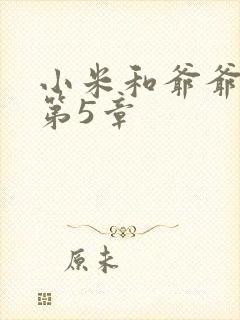 小米和爷爷
第5章
原来